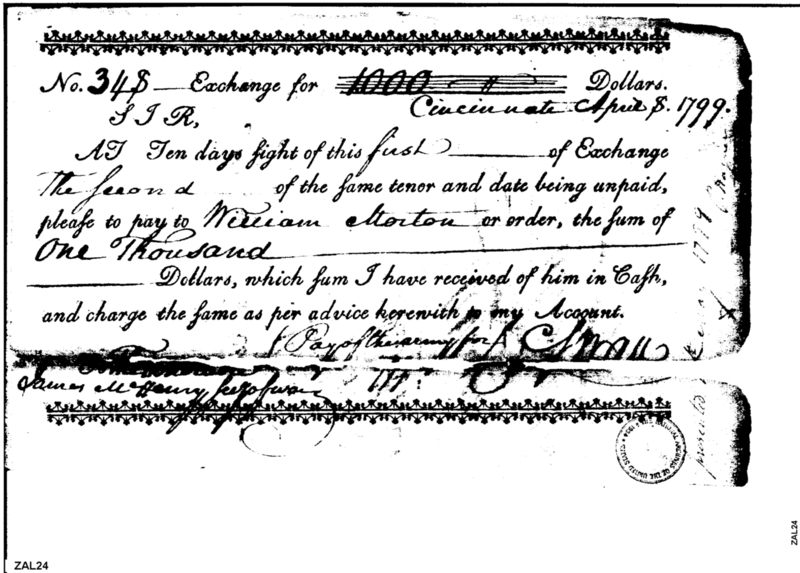 No. 348 — Exchange for 1000 Dollars.
Cincinnati April 8. 1799.
SIR,
AT Ten days ſight of this first of Exchange
The Second of the ſame tenor and date being unpaid,
pleaſe to pay to William Morton or order, the ſum of
One Thousand
Dollars, which ſum I have received of him in Caſh,
and charge the ſame as per advice herewith to my Account.
Pay of the army for C Swan
James McHenry Secy of War
1799
ZAL24
ZAL24